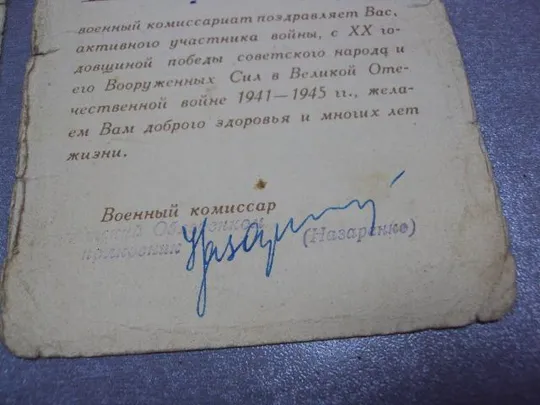 военный комиссариат поздравляет Вас,
активного участника войны, с XX го-
довщиной победы советского народа и
его Вооруженных Сил в Великой Оте-
чественной войне 1941—1945 гг., жела-
ем Вам доброго здоровья и многих лет
жизни.
Военный комиссар
полковник
(Назаренко)